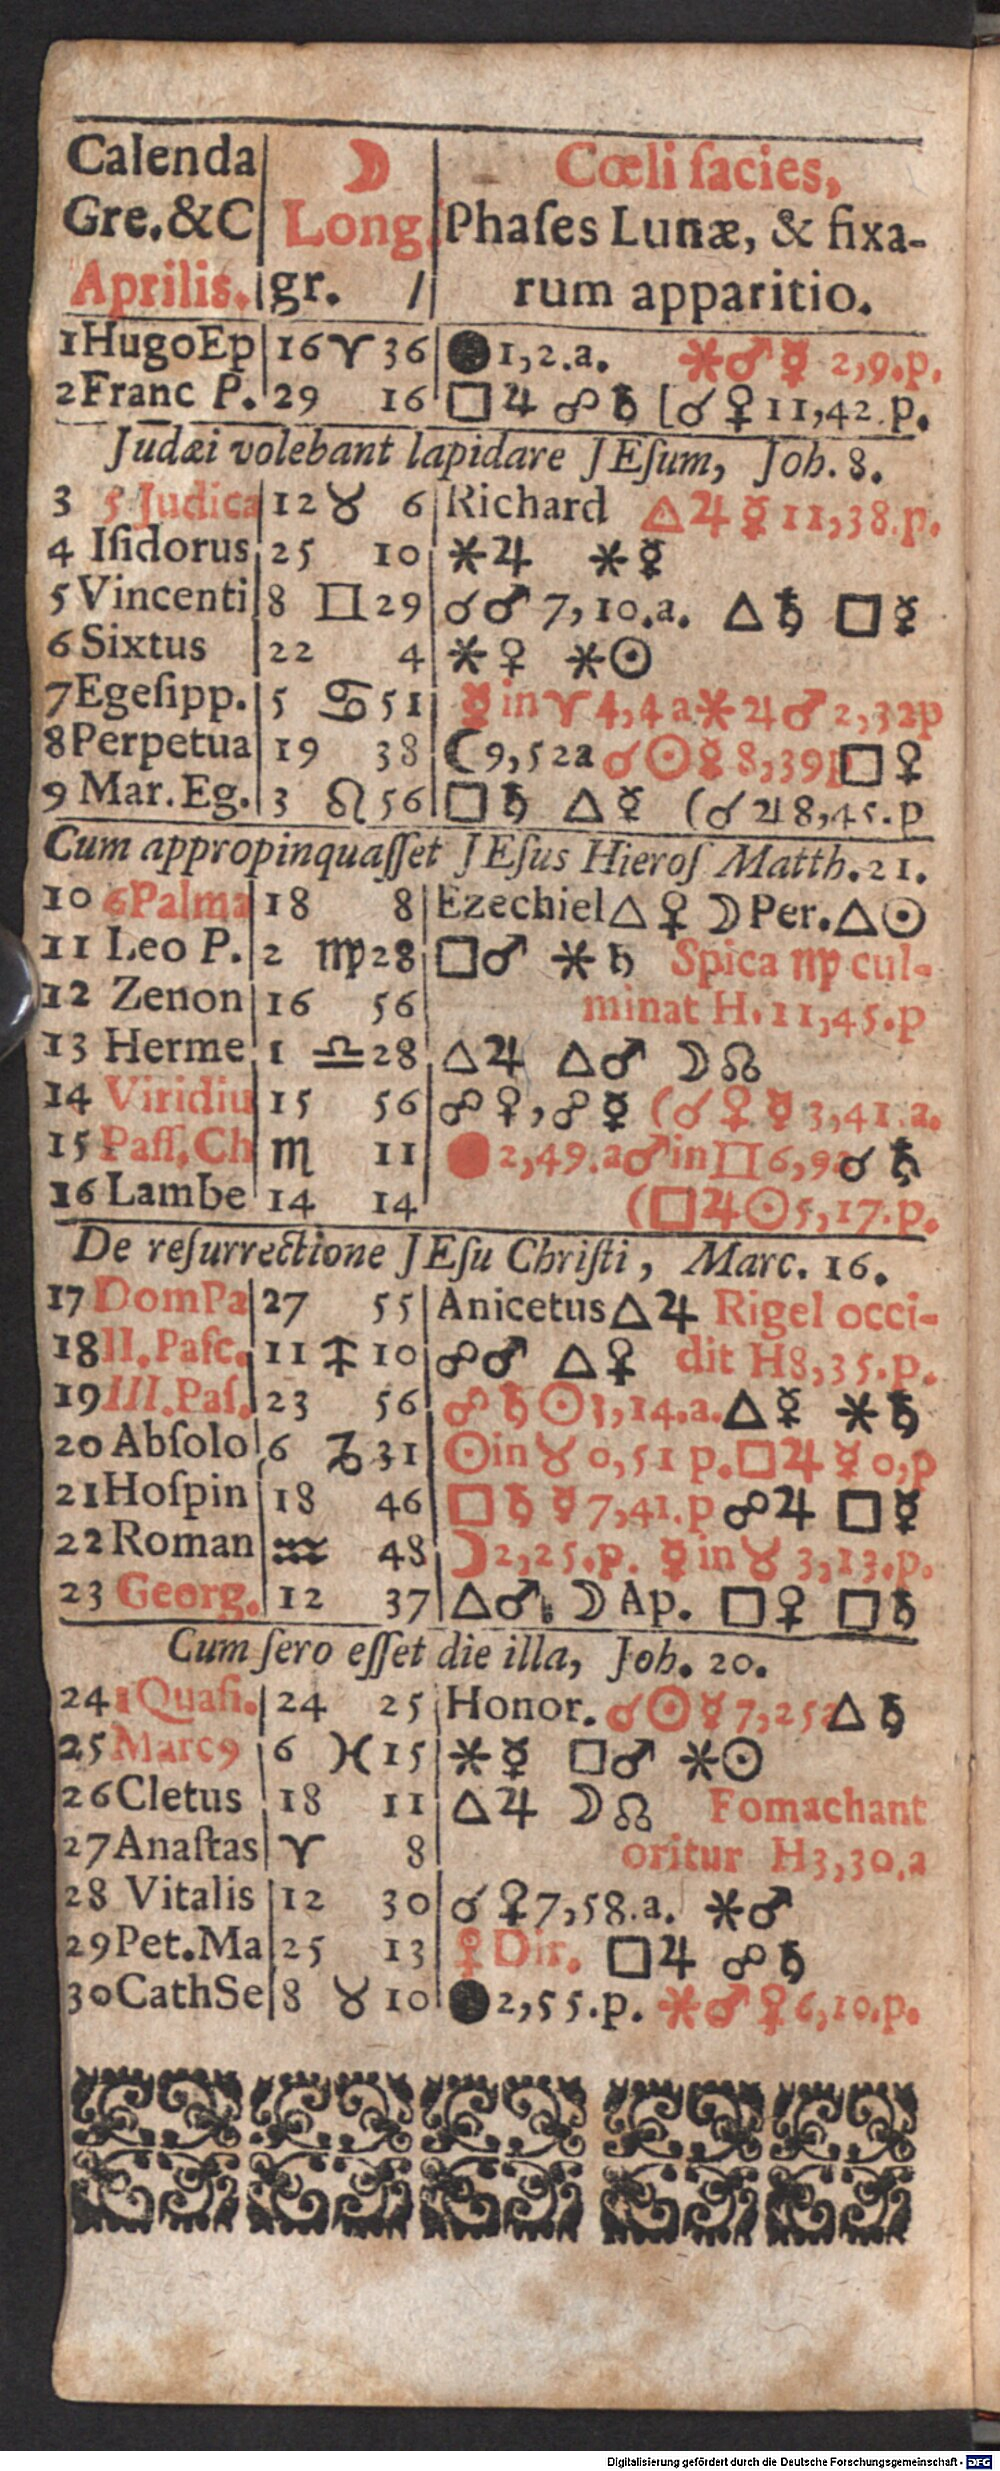 Calenda ☽ Cœli facies,
Gre.&C Long. Phaſes Lunæ, & fixa-
Aprilis. gr. / rum apparitio.
1 HugoEp 16 ♈ 36 ● 1,2.a. ⚹ ♂ ☿ 2,9.p.
2 Franc P. 29 16 □ ♃ ☍ ♄ [☌ ♀ 11,42.p.
Judæi volebant lapidare JEſum, Joh. 8.
3 5 Judica 12 ♉ 6 Richard △ ♃ ☿ 11,38.p.
4 Iſidorus 25 10 ⚹ ♃ ⚹ ☿
5 Vincenti 8 ♊ 29 ☌ ♂ 7,10.a. △ ♄ □ ☿
6 Sixtus 22 4 ⚹ ♀ ⚹ ☉
7 Egeſipp. 5 ♋ 51 ☿ in ♈ 4,4 a ⚹ ♃ ♂ 2,32p
8 Perpetua 19 38 ☾ 9,52a ☌ ☉ ☿ 8,39p □ ♀
9 Mar. Eg. 3 ♌ 56 □ ♄ △ ☿ (☌ ♃ 8,45.p
Cum appropinquaſſet JEſus Hieroſ Matth. 21.
10 6Palma 18 8 Ezechiel △ ♀ ☽ Per. △ ☉
11 Leo P. 2 ♍ 28 □ ♂ ⚹ ♄ Spica ♍ cul-
12 Zenon 16 56 minat H. 11,45.p
13 Herme 1 ♎ 28 △ ♃ △ ♂ ☽ ☊
14 Viridiu 15 56 ☍ ♀, ☍ ☿ (☌ ♀ ☿ 3,41.a.
15 Paſſ. Ch ♏ 11 ● 2,49.a ♂ in ♊ 6,9a ☌ ♄
16 Lambe 14 14 (□ ♃ ☉ 5,17.p.
De reſurrectione JEſu Chriſti, Marc. 16.
17 DomPa 27 55 Anicetus △ ♃ Rigel occi-
18 II. Paſc. 11 ♐ 10 ☍ ♂ △ ♀ dit H8,35.p.
19 III. Paſ. 23 56 ☍ ♄ ☉ 3,14.a. △ ☿ ⚹ ♄
20 Abſolo 6 ♑ 31 ☉ in ♉ 0,51 p. □ ♃ ☿ 0,p
21 Hoſpin 18 46 □ ♄ ☿ 7,41.p ☍ ♃ □ ☿
22 Roman ♒ 48 ☽ 2,25.p. ☿ in ♉ 3,13.p.
23 Georg. 12 37 △ ♂. ☽ Ap. □ ♀ □ ♄
Cum ſero eſſet die illa, Joh. 20.
24 1 Quaſi. 24 25 Honor. ☌ ☉ ☿ 7,25a △ ♄
25 Marc9 6 ♓ 15 ⚹ ☿ □ ♂ ⚹ ☉
26 Cletus 18 11 △ ♃ ☽ ☊ Fomachant
27 Anaſtas ♈ 8 oritur H3,30.a
28 Vitalis 12 30 ☌ ♀ 7,58.a. ⚹ ♂
29 Pet.Ma 25 13 ♀ Dir. □ ♃ ☍ ♄
30 CathSe 8 ♉ 10 ● 2,55.p. ⚹ ♂ ♀ 6,10.p.
Digitalisierung gefördert durch die Deutsche Forschungsgemeinschaft - DFG